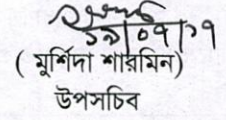 ১৯/০৭/১৭
( মুর্শিদা শারমিন)
উপসচিব